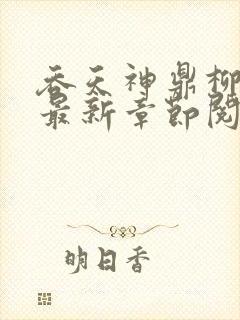 吞天神鼎柳
最新章节阅
明日香